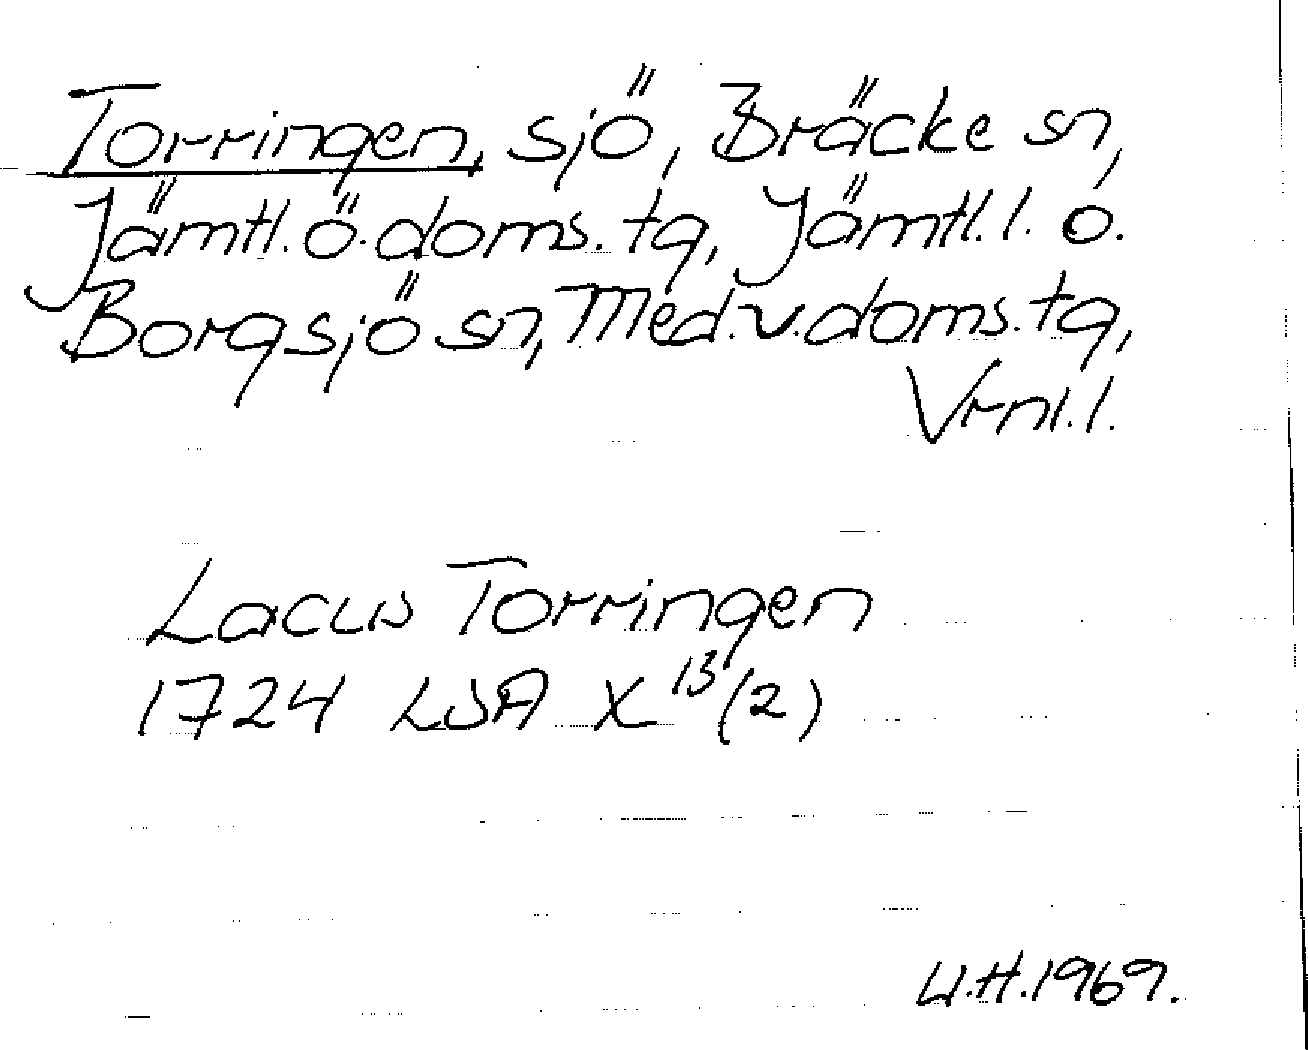 Torringen, sjö, Bräcke sn,
Jämtl. ö. doms. tg, Jämtl. l. o.
Borgsjö sn, Med. v. doms. tg,
Vrnl. l.
Lacus Torringen
1724 LSA X¹³(2)
U.H. 1969.